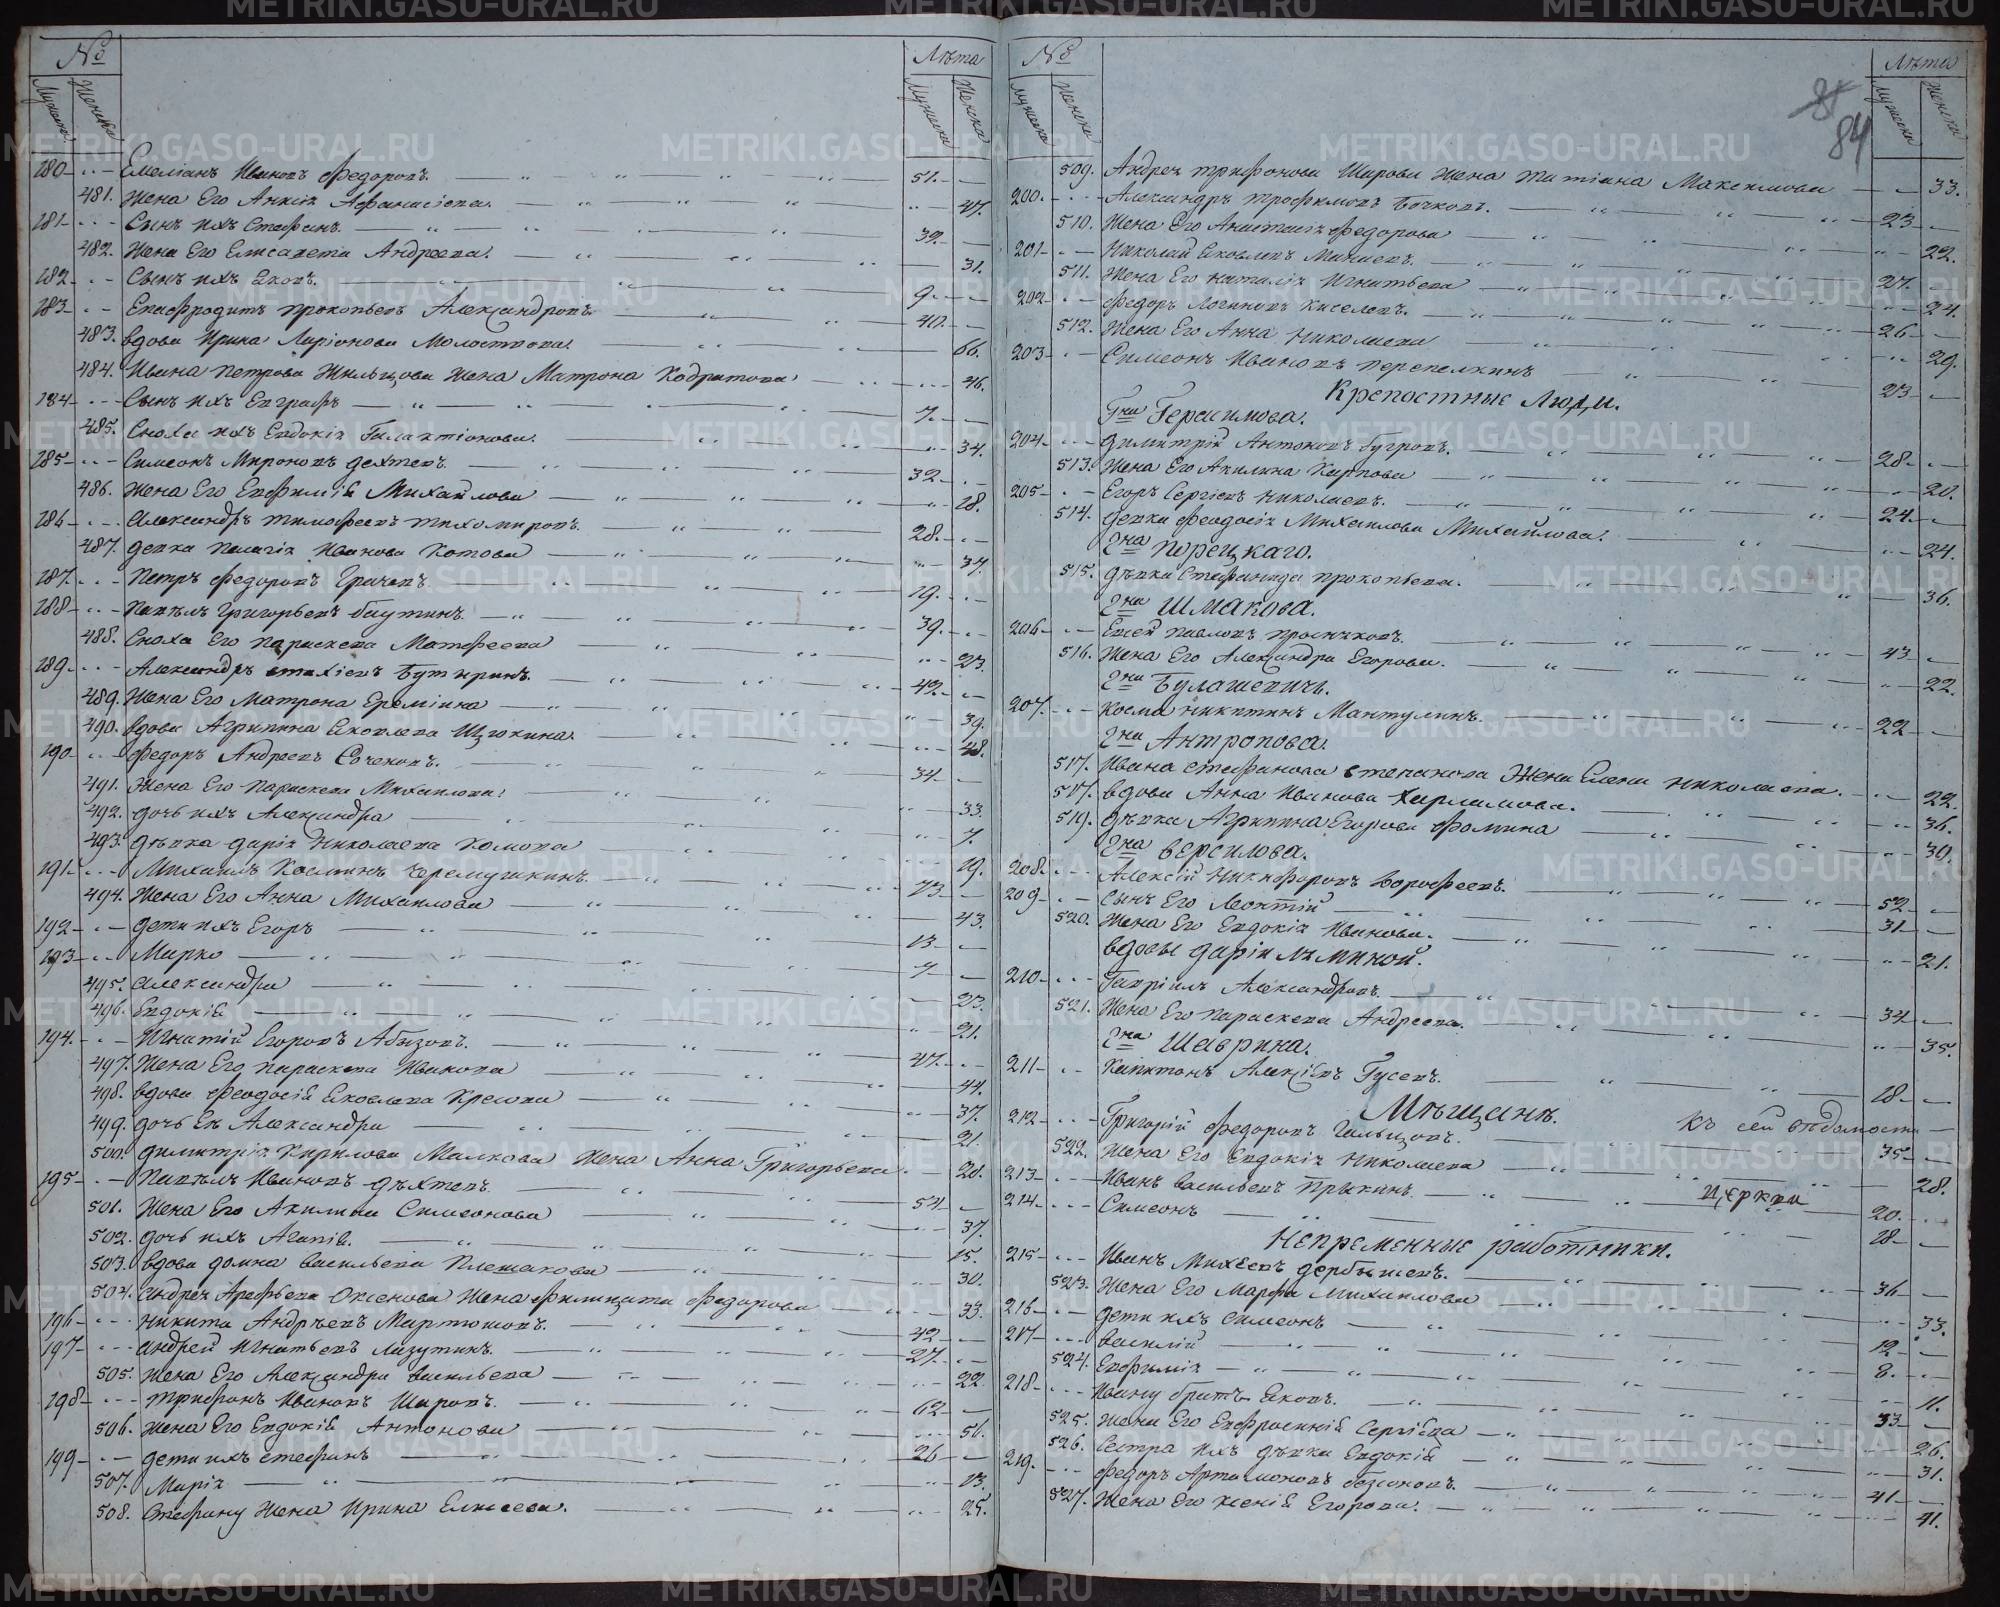 №
Лѣта
Мужеска
Женска
Мужеска
Женска
180 Емеліанъ Ивановъ Федоровъ. 51.
481. Жена Его Анисія Афанасіева. 47.
181 Сынъ ихъ Стефанъ. 32.
482. Жена Его Елисавета Андреева. 31.
182 Сынъ ихъ Яковъ. 9.
183 Епафродитъ Прокопьевъ Александровъ 40.
483. вдова Ирина Ларіонова 66.
484. Ивана Петрова Жильцова Жена Матрона Кодратова 46.
184 Сынъ ихъ Евграфъ 7.
485. Сноха ихъ Евдокія Галактіонова. 34.
185 Симеонъ Мироновъ Дехтевъ. 32.
486. Жена Его Евфимія Михайлова 28.
186 Александръ Тимофеевъ Тихомировъ. 28.
487. девка Пелагія Иванова Котова 37.
187. Петръ Федоровъ Грачевъ. 19.
188 Павелъ Григорьевъ Баутинъ. 39.
488. Сноха Его Параскева Матфеева 23.
189. Александръ Стахіевъ Бутыринъ. 42.
489. Жена Его Матрона Ереміина 39.
490. вдова Агрипина Яковлева Щукина. 48.
190 Федоръ Андреевъ 34.
491. Жена Его Параскева Михаилова. 33.
492. дочь ихъ Александра 7.
493. дѣвка Дарія Николаева Комова 19.
191 Михаилъ Косминъ Черемушкинъ. 73
494. Жена Его Анна Михаилова 43.
192 дети ихъ Егоръ 13
193 Марко 7
495. Александра 23.
496. Евдокія 21.
194. Игнатій Егоровъ Абызовъ. 47.
497. Жена Его Параскева Иванова 44.
498. вдова Феодосія Яковлева 37.
499. дочь Ея Александра 21.
500. Димитрія Кирилова Малкова Жена Анна Григорьева. 20.
195 Павелъ Ивановъ Дѣхтевъ. 54
501. Жена Его Акилина Симеонова 37.
502. дочь ихъ Агапія. 15.
503. вдова Домна Васильева Плешакова 30.
504. Андрея Арефьева Оксенова Жена Филицата Федорова 33.
196 Никита Андрѣевъ Мартюшовъ. 42
197 Андрей Игнатьевъ Лазутинъ. 27.
505. Жена Его Александра Васильева 22.
198 Трифонъ Ивановъ Шаровъ. 62
506. Жена Его Евдокія Антонова 56.
199 дети ихъ Стефанъ 26
507. Марія 13.
508. Стефану Жена Ирина Елисеева. 25.
№
Лѣта
Мужеска
Женска
Мужеска
Женска
84
509. Андрея Трифонова Шарова Жена Татіана Максимова 33.
200. Александръ Трофимовъ Бочковъ. 23
510. Жена Его Анастасія Федорова 22.
201 Николай Яковлевъ Минаевъ. 27.
511. Жена Его Наталія Игнатьева 24.
202 Федоръ Логиновъ Киселевъ. 26
512. Жена Его Анна Николаева 29.
203 Симеонъ Ивановъ Перепелкинъ 23
Крепостные Люди.
Гна Герасимова.
204 Димитрій Антоновъ Бугровъ. 28.
513. Жена Его Акилина Карпова 20.
205 Егоръ Сергіевъ Николаевъ. 24.
514. девка Феодосія Михаилова Михайлова. 24.
Гна Порецкаго.
515. дѣвка Стефанида Прокопьева. 36.
Гна Шмакова.
206 Евсей Павловъ 43
516. Жена Его Александра Егорова. 22.
Гжи Булашевичъ.
207. Косма Никитинъ Мантулинъ. 22
Гжи Антропова.
517. Ивана Стефанова Степанова Жена Елена Николаева. 22.
517. вдова Анна Иванова Харламова. 36.
519. дѣвка Агрипина Егорова Фомина 30.
Гна Версилова.
208. Алексій Никифоровъ Дорофеевъ. 52
209 Сынъ Его Леонтій 31.
520. Жена Его Евдокія Иванова. 21.
вдовы Даріи Лѣминой.
210 Гавріилъ Александровъ. 34
521. Жена Его Параскева Андреева. 35.
Гна Шаврина.
211 Капитонъ Алексіевъ Гусевъ. 18.
Мѣщанѣ.
212 Григорій Федоровъ Гальцовъ. 35
Къ сей вѣдомости
522. Жена Его Евдокія Николаева 28.
213 Иванъ Васильевъ Прыкинъ. 20.
церкви
214 Симеонъ 18
Непременные работники.
215 Иванъ Михеевъ Дербышевъ. 36
523. Жена Его Марфа Михаилова 33.
216 дети ихъ Симеонъ 12
217 Василій 8.
524. Евфимія 11.
218 Ивану братъ Яковъ. 33
525. Жена Его Евфросинія Сергіева 26.
526. Сестра ихъ дѣвка Евдокія 31.
219. Федоръ Артамоновъ 41
527. Жена Его Ксенія Егорова. 41.
METRIKI.GASO-URAL.RU